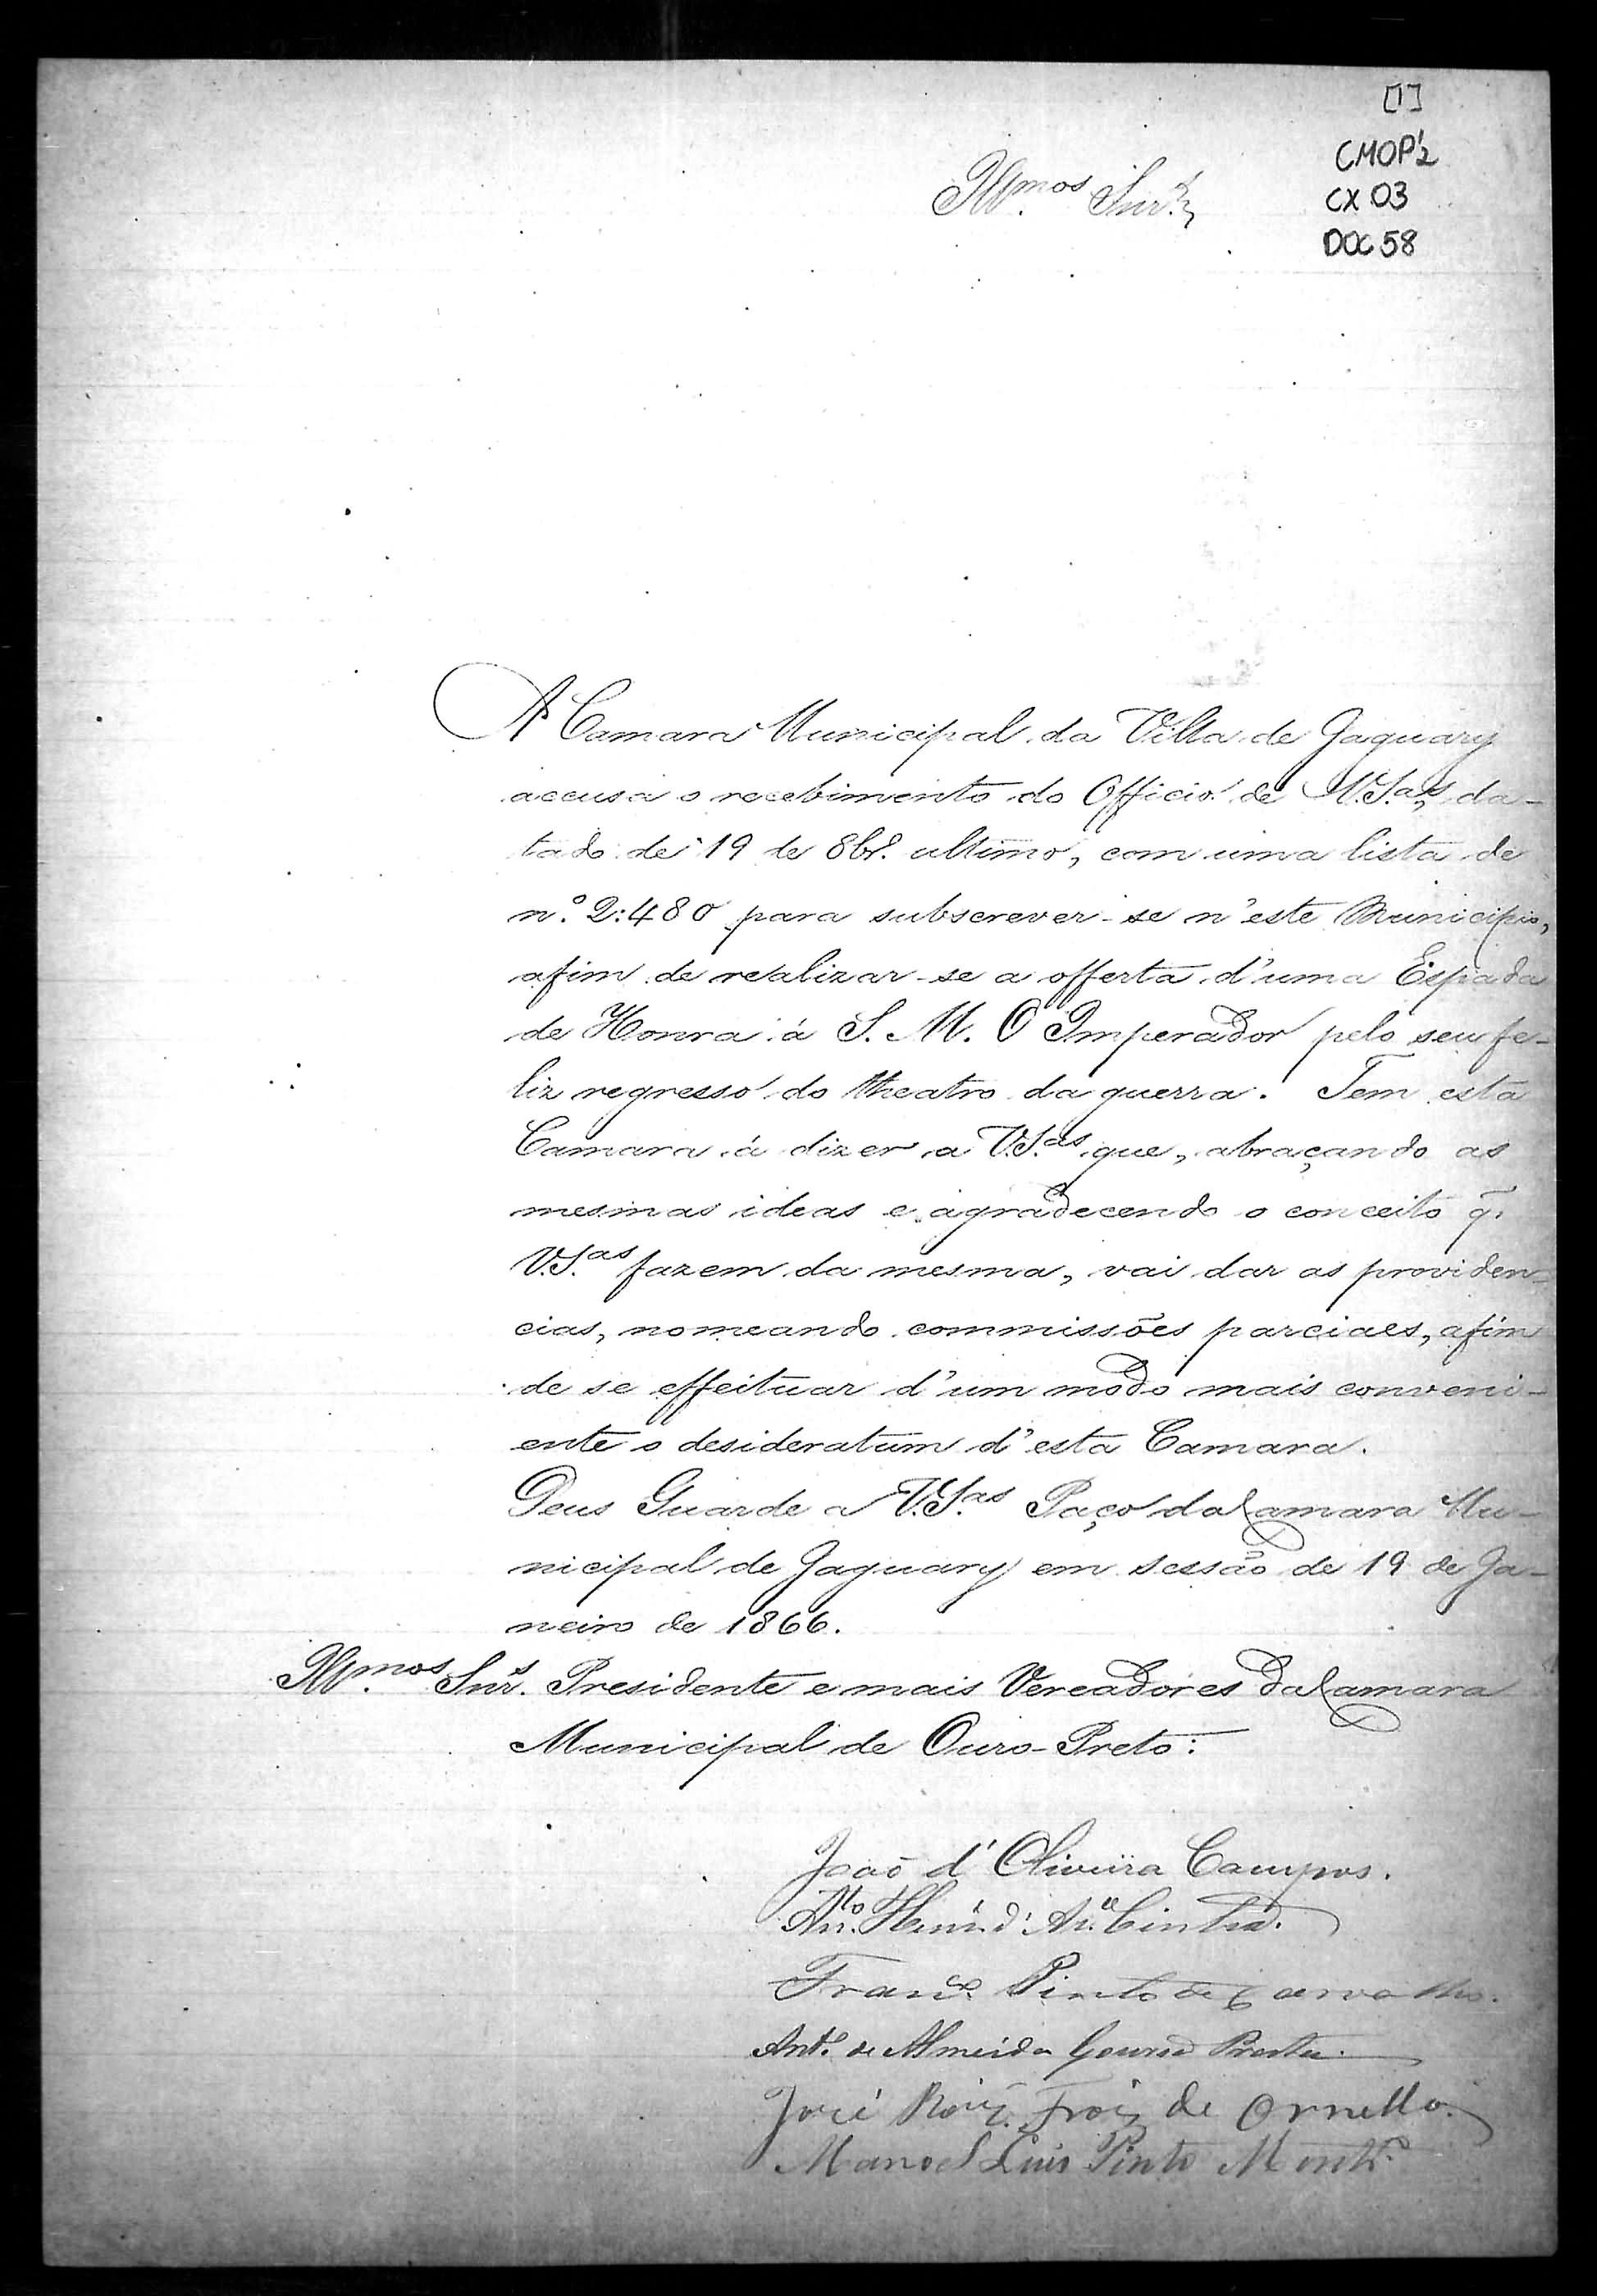 [1]
CMOP'2
CX 03
DOC 58
Ill.mos Snr.s
A Camara Municipal da Villa de Jaguary
accusa o recebimento do Officio de V.S.as da-
tado de 19 de 8br.o ultimo, com uma lista de
n.o 2:480 para subscrever-se n'este Municipio,
afim de realizar-se a offerta d'uma Espada
de Honra á S. M. O Imperador pelo seu fe-
liz regresso do theatro da guerra. Tem esta
Camara á dizer a V.S.as que, abraçando as
mesmas ideas e agradecendo o conceito q̃.
V.S.as fazem da mesma, vai dar as providen-
cias, nomeando commissões parciaes, afim
de se effeituar d'um modo mais conveni-
ente o desideratum d'esta Camara.
Deus Guarde a V.S.as Paço da Camara Mu-
nicipal de Jaguary em sessão de 19 de Ja-
neiro de 1866.
Ill.mos Snr.s Presidente e mais Vereadores da Camara
Municipal de Ouro-Preto:
João d'Oliveira Campos.
An.to Cintra.
Fran.co Pinto de Carvalho.
Ant.o de Almeida
José Roiz Frois de Ornellas
Manoel Luis Pinto Montr.o